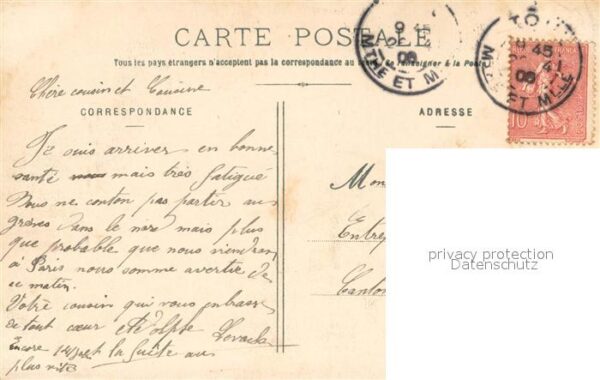 CARTE POSTALE
Tous les pays étrangers n'acceptent pas la correspondance au se renseigner à la Poste
Chère cousin et Cousine
CORRESPONDANCE
ADRESSE
Je suis arriver en bonne
santé mais très fatigué
Nous ne conton pas partir au
grèves dans le nord mais plus
que probable que nous viendron
à Paris nous somme avertie de
ce matin.
Votre cousin qui vous enbrasse
de tout cœur
Encore la suite au
plus vite
Mon
Entre
Canton
privacy protection
Datenschutz
TOUL
45
08
MTHE ET M
ET MLLE
10